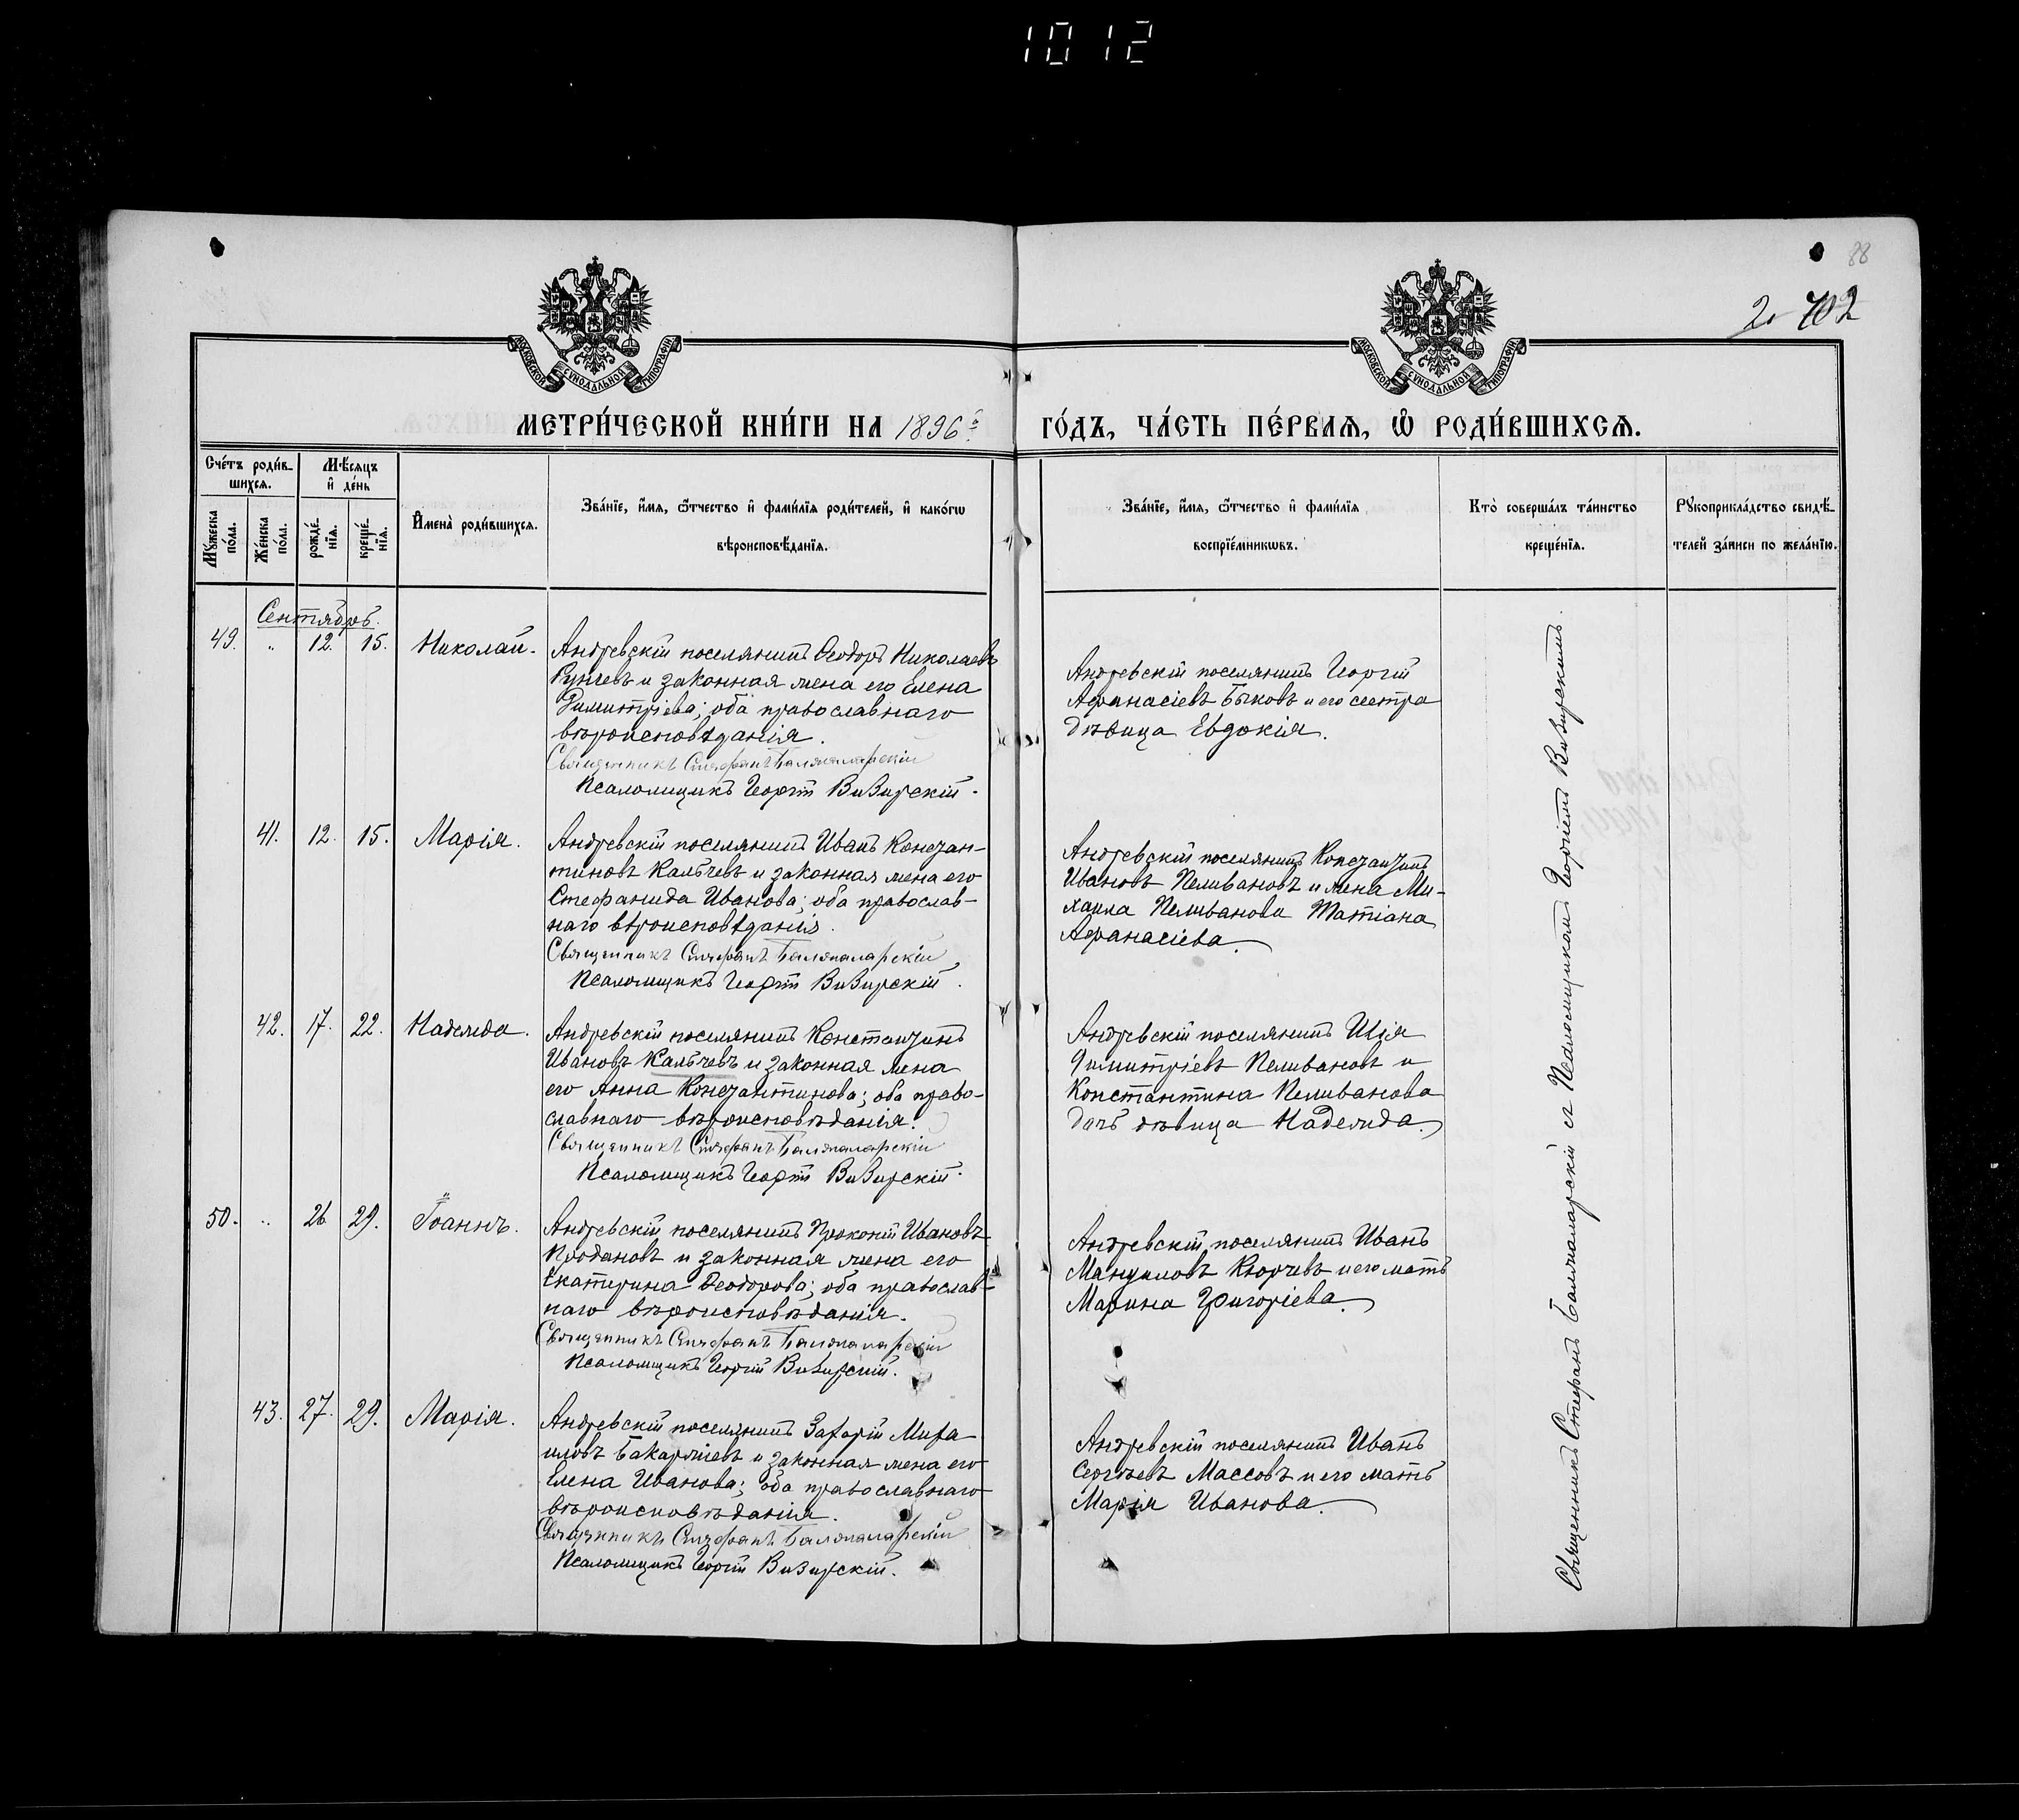 1012
88
2. 702
МОСКОВСКОЙ СѴНОДАЛЬНОЙ ТИПОГРАФІИ
МОСКОВСКОЙ СѴНОДАЛЬНОЙ ТИПОГРАФІИ
МЕТРИ́ЧЕСКОЙ КНИ́ГИ НА 1896й
ГО́ДЪ, ЧА́СТЬ ПЕ́РВАЯ, Ѡ РОДИ́ВШИХСѦ.
Сче́тъ роди́в-
шихсѧ.
Мѣ́сѧцъ
и҆ де́нь
Мꙋ́жеска
по́ла.
Же́нска
по́ла.
рожде́-
нїѧ.
креще́-
нїѧ.
И҆мена̀ роди́вшихсѧ.
Зва́нїе, и҆́мѧ, ѻ҆́тчество и҆ фами́лїѧ роди́телей, и҆ како́гѡ
вѣроисповѣ́данїѧ.
Зва́нїе, и҆́мѧ, ѻ҆́тчество и҆ фами́лїѧ
воспрїе́мникѡвъ.
Кто̀ соверша́лъ та́инство
креще́нїѧ.
Рꙋкоприкла́дство свидѣ́-
телей за́писи по жела́нїю.
Сентябрь.
49. " 12. 15. Николай.
Андреевскій поселянинъ Ѳеодоръ Николаевъ
Рунчевъ и законная жена его Елена
Димитріева; оба православнаго
вѣроисповѣданія.
Священникъ Стефанъ Балжаларскій
Псаломщикъ Георгій Визирскій.
Андреевскій поселянинъ Георгій
Афанасіевъ Быковъ и его сестра
дѣвица Евдокія.
41. 12. 15. Марія.
Андреевскій поселянинъ Иванъ Констан-
тиновъ Кальчевъ и законная жена его
Стефанида Иванова; оба православ-
наго вѣроисповѣданія.
Священникъ Стефанъ Балжаларскій
Псаломщикъ Георгій Визирскій.
Андреевскій поселянинъ Константинъ
Ивановъ Пеливановъ и жена Ми-
хаила Пеливанова Татіана
Афанасіева.
42. 17. 22. Надежда.
Андреевскій поселянинъ Константинъ
Ивановъ Кальчевъ и законная жена
его Анна Константинова; оба право-
славнаго вѣроисповѣданія.
Священникъ Стефанъ Балжаларскій
Псаломщикъ Георгій Визирскій.
Андреевскій поселянинъ Илія
Димитріевъ Пеливановъ и
Константина Пеливанова
дочь дѣвица Надежда.
50. " 26 29. Іоаннъ.
Андреевскій поселянинъ Прокопій Ивановъ
Продановъ и законная жена его
Екатерина Ѳеодорова; оба православ-
наго вѣроисповѣданія.
Священникъ Стефанъ Балжаларскій
Псаломщикъ Георгій Визирскій.
Андреевскій поселянинъ Иванъ
Мануиловъ Кюрчевъ и его мать
Марина Григоріева.
43. 27. 29. Марія.
Андреевскій поселянинъ Захарій Миха-
иловъ Бакаржіевъ и законная жена его
Елена Иванова; оба православнаго
вѣроисповѣданія.
Священникъ Стефанъ Балжаларскій
Псаломщикъ Георгій Визирскій.
Андреевскій поселянинъ Иванъ
Сергѣевъ Массовъ и его мать
Марія Иванова.
Священникъ Стефанъ Балжаларскій съ Псаломщикомъ Георгіемъ Визирскимъ.